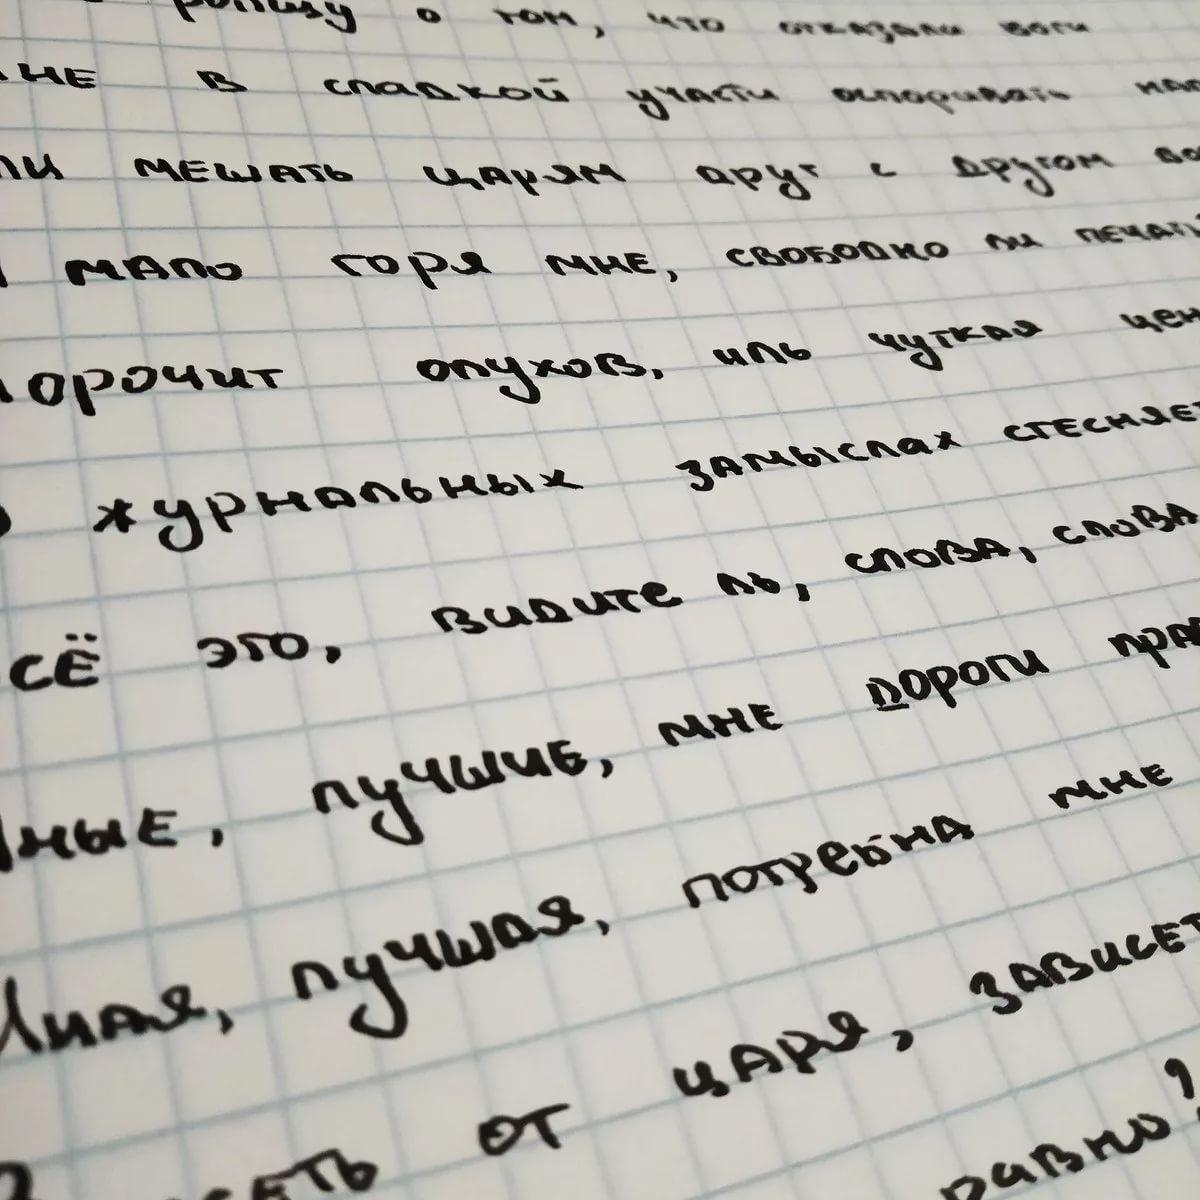 ропщу о том, что отказали боги
мне в сладкой участи оспоривать
мешать царям друг с другом
мало горя мне, свободно ли печать
морочит олухов, иль чуткая цен
журнальных замыслах стесняет
сё это, видите ль, слова, слова
иные, лучшие, мне дороги пра
Иная, лучшая, потребна мне
сеть от царя, зависет
равно?